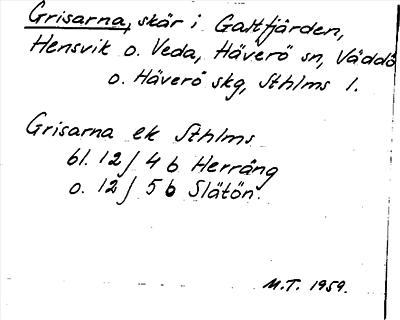 Grisarna, skär i Galtfjärden,
Hensvik o. Veda, Häverö sn, Väddö
o. Häverö skg, Sthlms l.
Grisarna ek Sthlms
bl. 12J 4 b Herräng
o. 12J 5 b Slätön.
M.T. 1959.